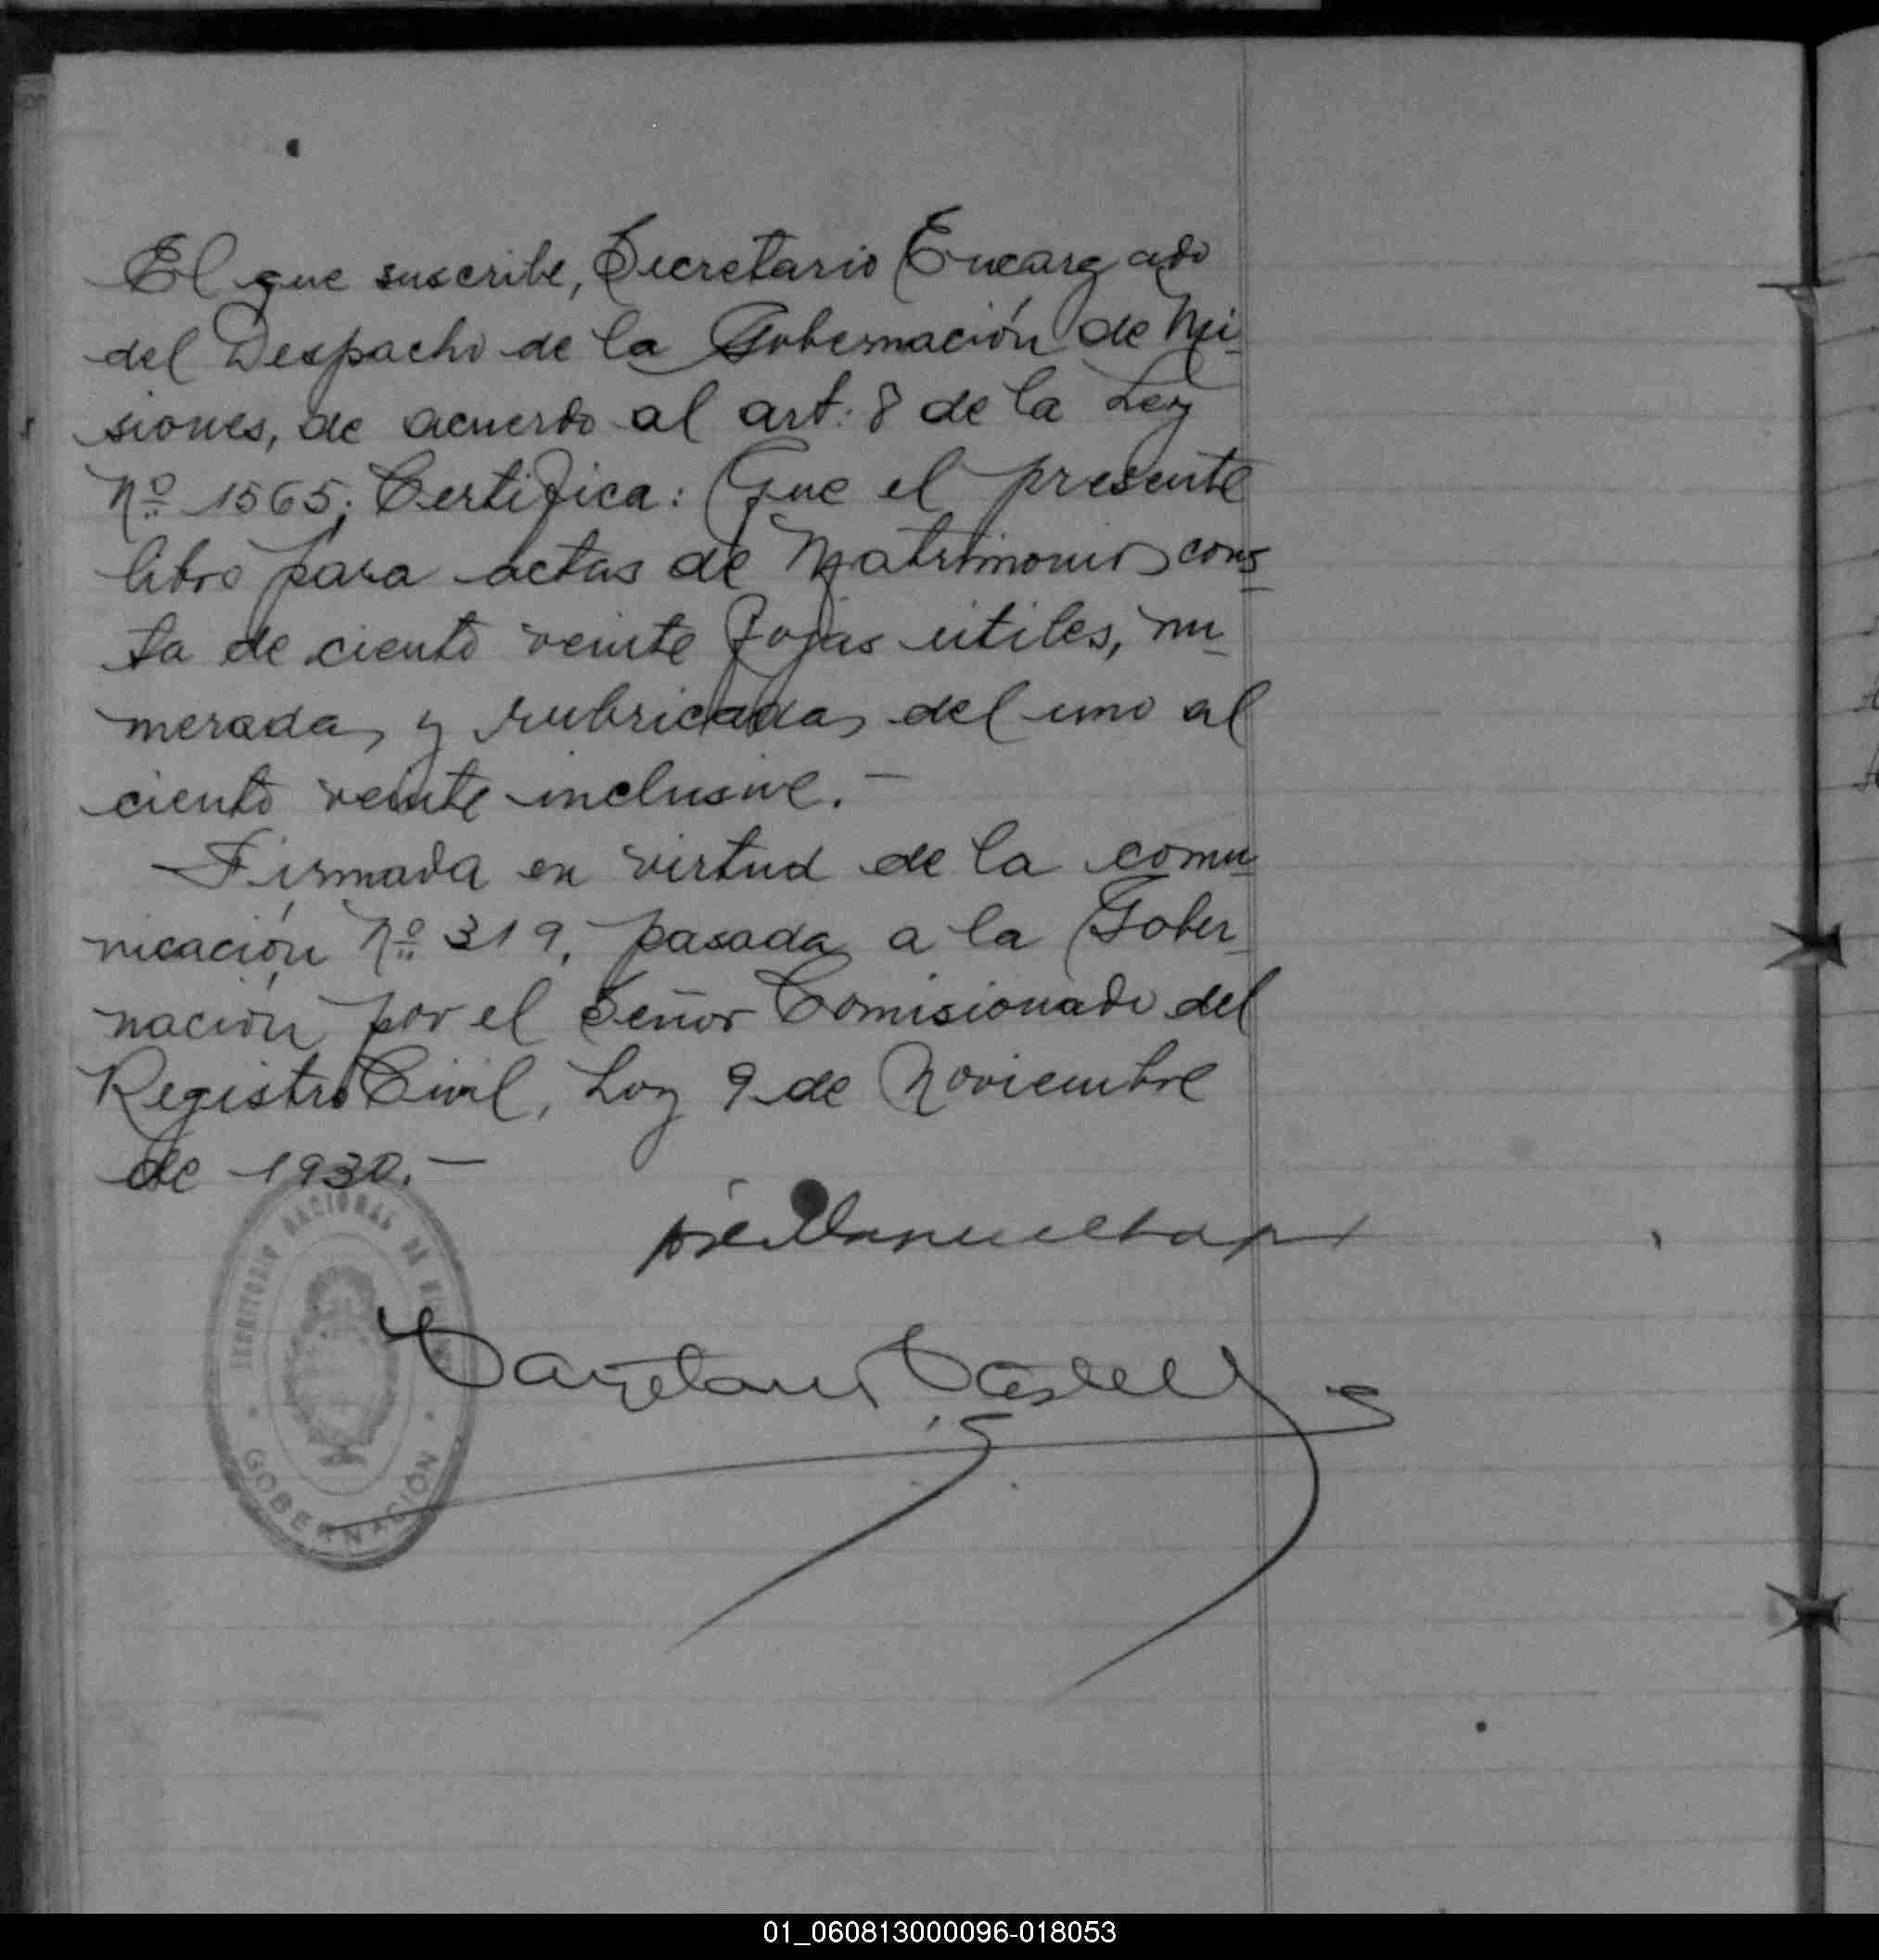 El que suscribe, Secretario Encargado
del Despacho de la Gobernación de Mi-
siones, de acuerdo al art: 8 de la Ley
Nº 1565; Certifica: Que el presente
libro para actas de Matrimonios cons-
ta de ciento veinte fojas útiles, nu-
meradas y rubricadas del uno al
ciento veinte inclusive.-
Firmada en virtud de la comu-
nicación Nº 319, pasada a la Gober-
nación por el Señor Comisionado del
Registro Civil, hoy 9 de Noviembre
de 1930.-
TERRITORIO NACIONAL DE MISIONES
GOBERNACIÓN
Cayetano Castell
01_060813000096-018053